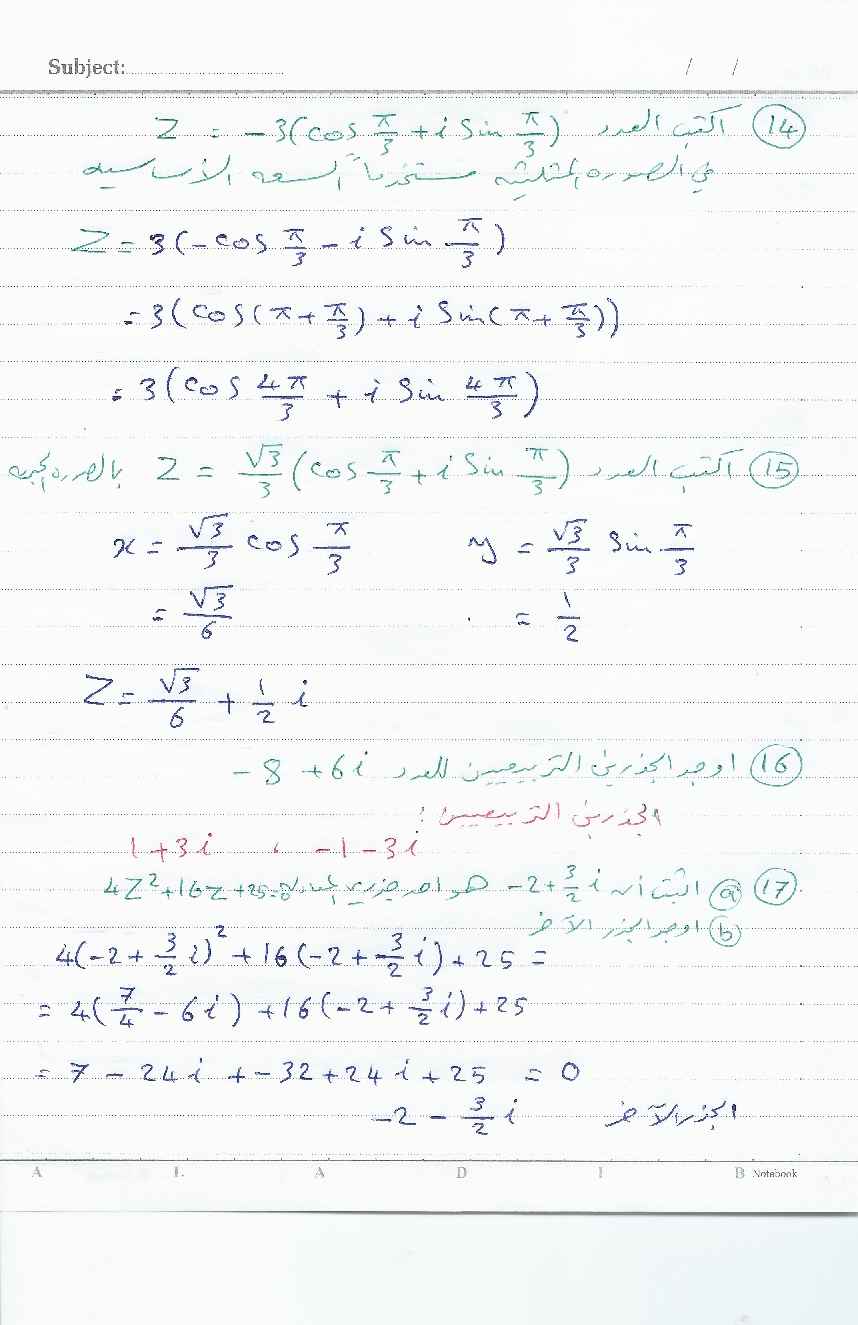 Subject: / /
(14) اكتب العدد Z = -3(cos π/3 + i Sin π/3)
في الصوره المثلثيه مستخدماً السعه الأساسيه
Z = 3(-cos π/3 - i Sin π/3)
= 3(cos(π+π/3) + i Sin(π+π/3))
= 3(cos 4π/3 + i Sin 4π/3)
(15) اكتب العدد Z = √3/3 (cos π/3 + i Sin π/3) بالصوره الجبريه
x = √3/3 cos π/3 y = √3/3 Sin π/3
= √3/6 = 1/2
Z = √3/6 + 1/2 i
(16) اوجد الجذرين التربيعيين للعدد -8 + 6i
الجذرين التربيعيين :
1+3i ، -1-3i
(17) (a) اثبت أن -2+3/2 i هو احد جذري المعادلة 4Z²+16Z+25=0
(b) اوجد الجذر الآخر
4(-2+3/2 i)² + 16(-2+3/2 i) + 25 =
= 4(7/4 - 6i) + 16(-2+3/2 i) + 25
= 7 - 24i + -32 + 24i + 25 = 0
الجذر الآخر -2 - 3/2 i
A L A D I B Notebook